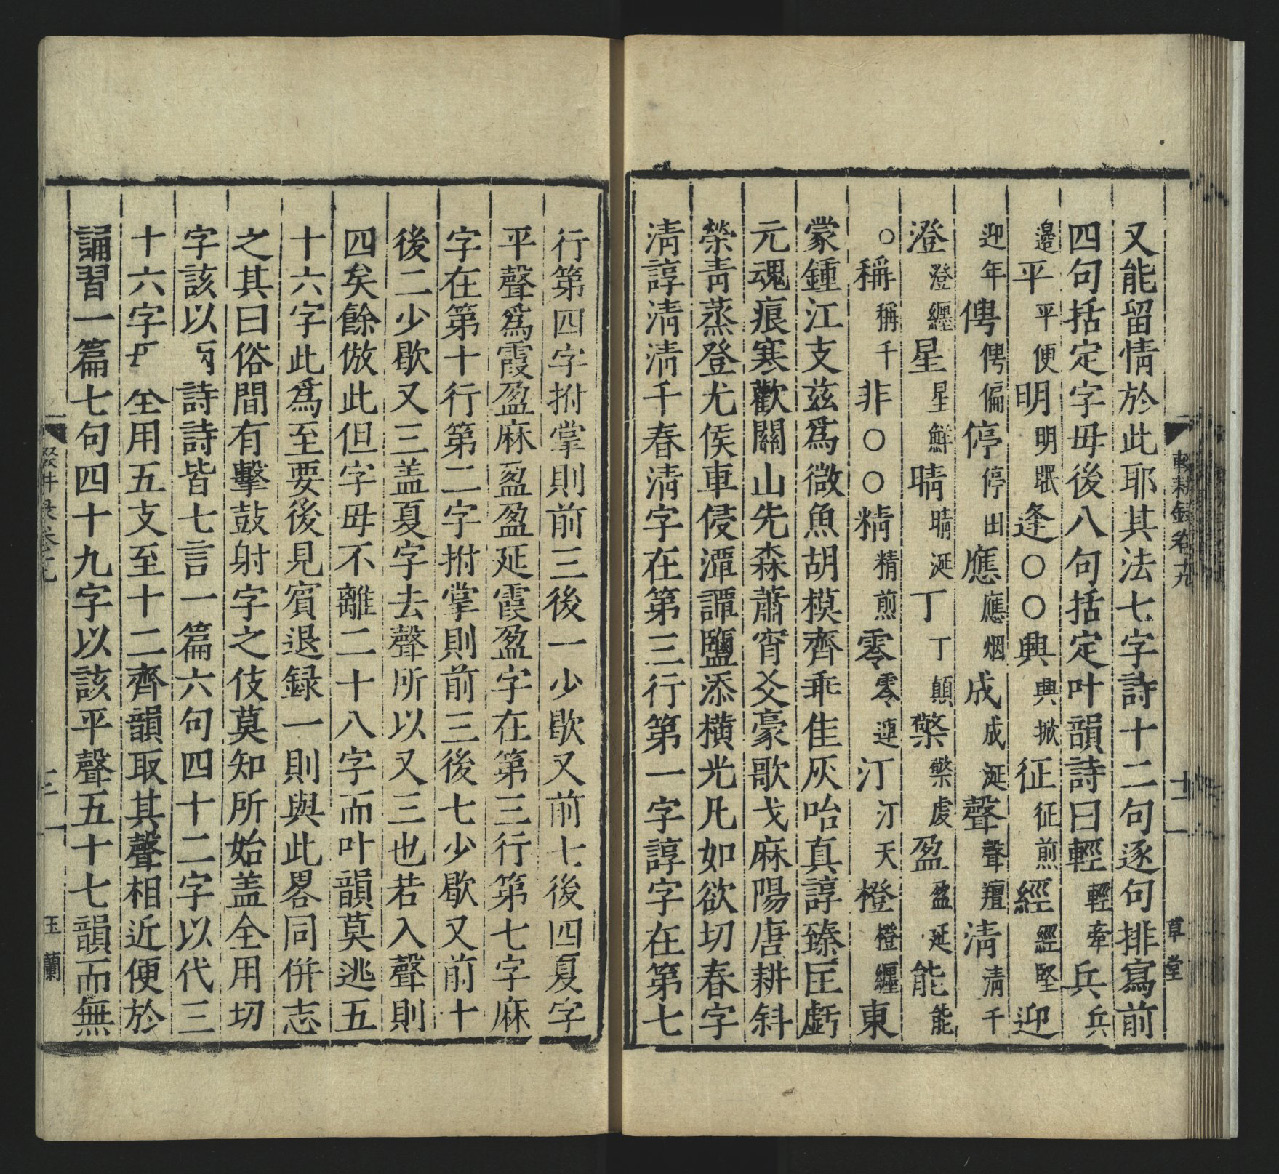 又能留情於此耶其法七字詩十二句逐句排寫前
四句括定字毋後八句括定叶韻詩曰輕輕牽兵兵
邊平平便明明眠逢○○興興掀征征煎經經堅迎
迎年俜俜偏停停田應應烟成成涎聲聲羶清清千
澄澄纏星星鮮晴晴涎丁丁顛檠檠虔盈盈延能能
○稱稱千非○○精精煎零零連汀汀天橙橙纏東
蒙鍾江支茲爲微魚胡模齊乖佳灰咍真諄臻匡虧
元魂痕寒歡關山先森蕭宵爻豪歌戈麻陽唐耕斜
榮青蒸登尤侯車侵潭譚鹽添橫光凡如欲切春字
清諄清清千春清字在第三行第一字諄字在第七
行第四字拊掌則前三後一少歇又前七後四夏字
平聲爲霞盈麻盈盈延霞盈字在第三行第七字麻
字在第十行第二字拊掌則前三後七少歇又前十
後二少歇又三盖夏字去聲所以又三也若入聲則
四矣餘倣此但字毋不離二十八字而叶韻莫逃五
十六字此爲至要後見賓退録一則與此畧同併志
之其曰俗間有擊鼓射字之伎莫知所始盖全用切
字該以兩詩詩皆七言一篇六句四十二字以代三
十六字母全用五支至十二齊韻取其聲相近便於
誦習一篇七句四十九字以該平聲五十七韻而無
輟耕錄卷十九
十一
草堂
玉蘭